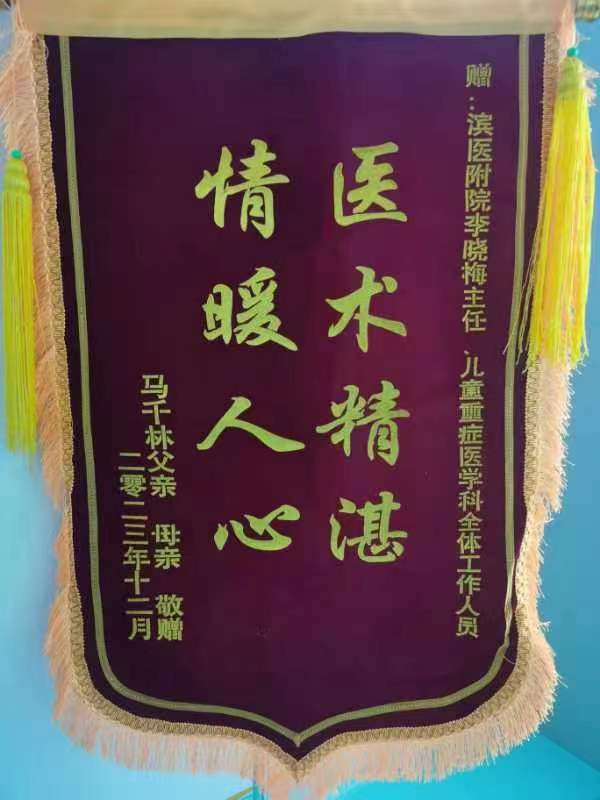 赠：滨医附院李晓梅主任、儿童重症医学科全体工作人员
医术精湛
情暖人心
马千林父亲 母亲 敬赠
二零二三年十二月